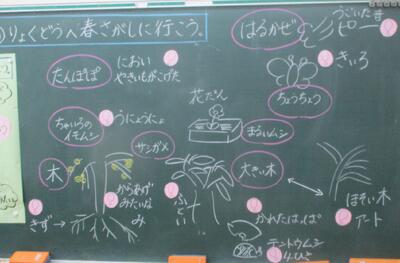 りょくどうへ春さがしに行こう。
はるかぜ
うごいたま
ピー
たんぽぽ
におい
やきいもがこげた
きいろ
ちょうちょう
花だん
ちゃいろの
イモムシ
うにょうにょ
まるいムシ
サシガメ
木
大きい木
からあげ
みたいな
み
ふとい
ほそい木
アート
きず
かれたはっぱ
テントウムシ
4ひき